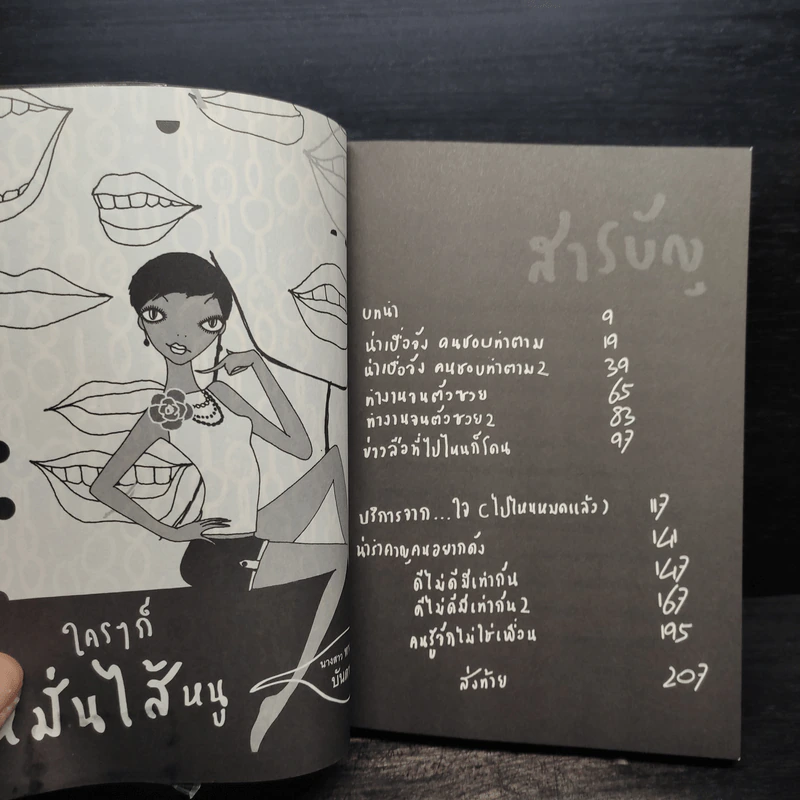 ใครๆก็
หมั่นไส้หนู
นางสาว
บัน
สารบัญ
บทนำ 9
น่าเบื่อจัง คนชอบทำตาม 19
น่าเบื่อจัง คนชอบทำตาม 2 39
ทำงานจนตัวซวย 65
ทำงานจนตัวซวย 2 83
ข่าวลือที่ไปไหนก็โดน 97
บริการจาก...ใจ (ไปไหนหมดแล้ว) 117
น่ารำคาญคนอยากดัง 141
ดีไม่ดีมีเท่ากัน 147
ดีไม่ดีมีเท่ากัน 2 167
คนรู้จักไม่ใช่เพื่อน 195
สั่งท้าย 207